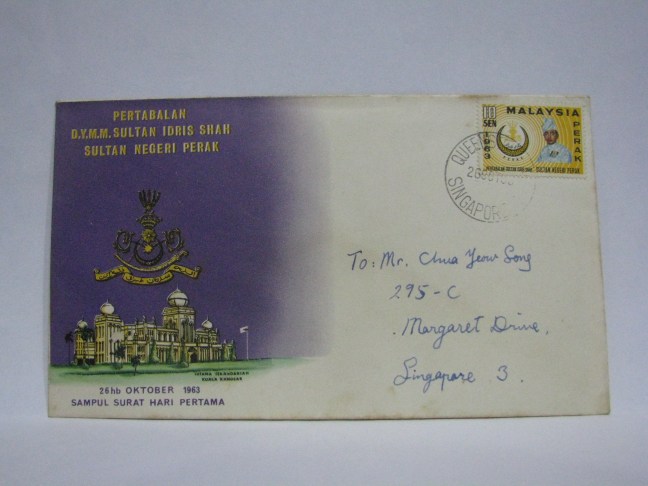 PERTABALAN
D.Y.M.M. SULTAN IDRIS SHAH
SULTAN NEGERI PERAK
ISTANA ISKANDARIAH
KUALA KANGSAR
26hb OKTOBER 1963
SAMPUL SURAT HARI PERTAMA
10
SEN
MALAYSIA
PERAK
1963
SULTAN NEGERI PERAK
SINGAPORE
To: Mr. Chua Yeow Song
295-C
Margaret Drive,
Singapore 3.